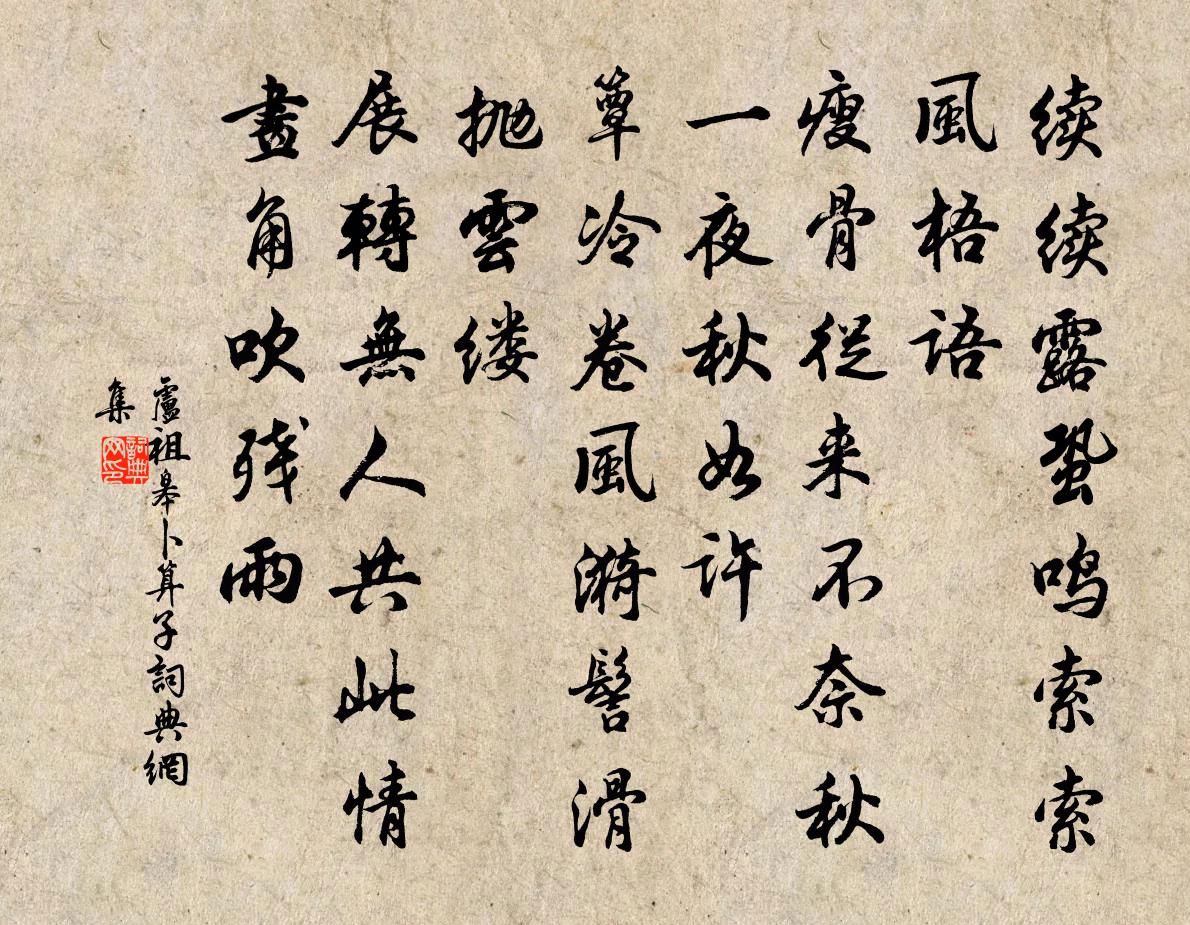 续续露蛩鸣索索
風梧语
瘦骨從来不奈秋
一夜秋如许
簟冷卷風漪髻滑
抛雲缕
展轉無人共此情
畫角吹残雨
盧祖皋卜算子詞典網
集
詞典
网印